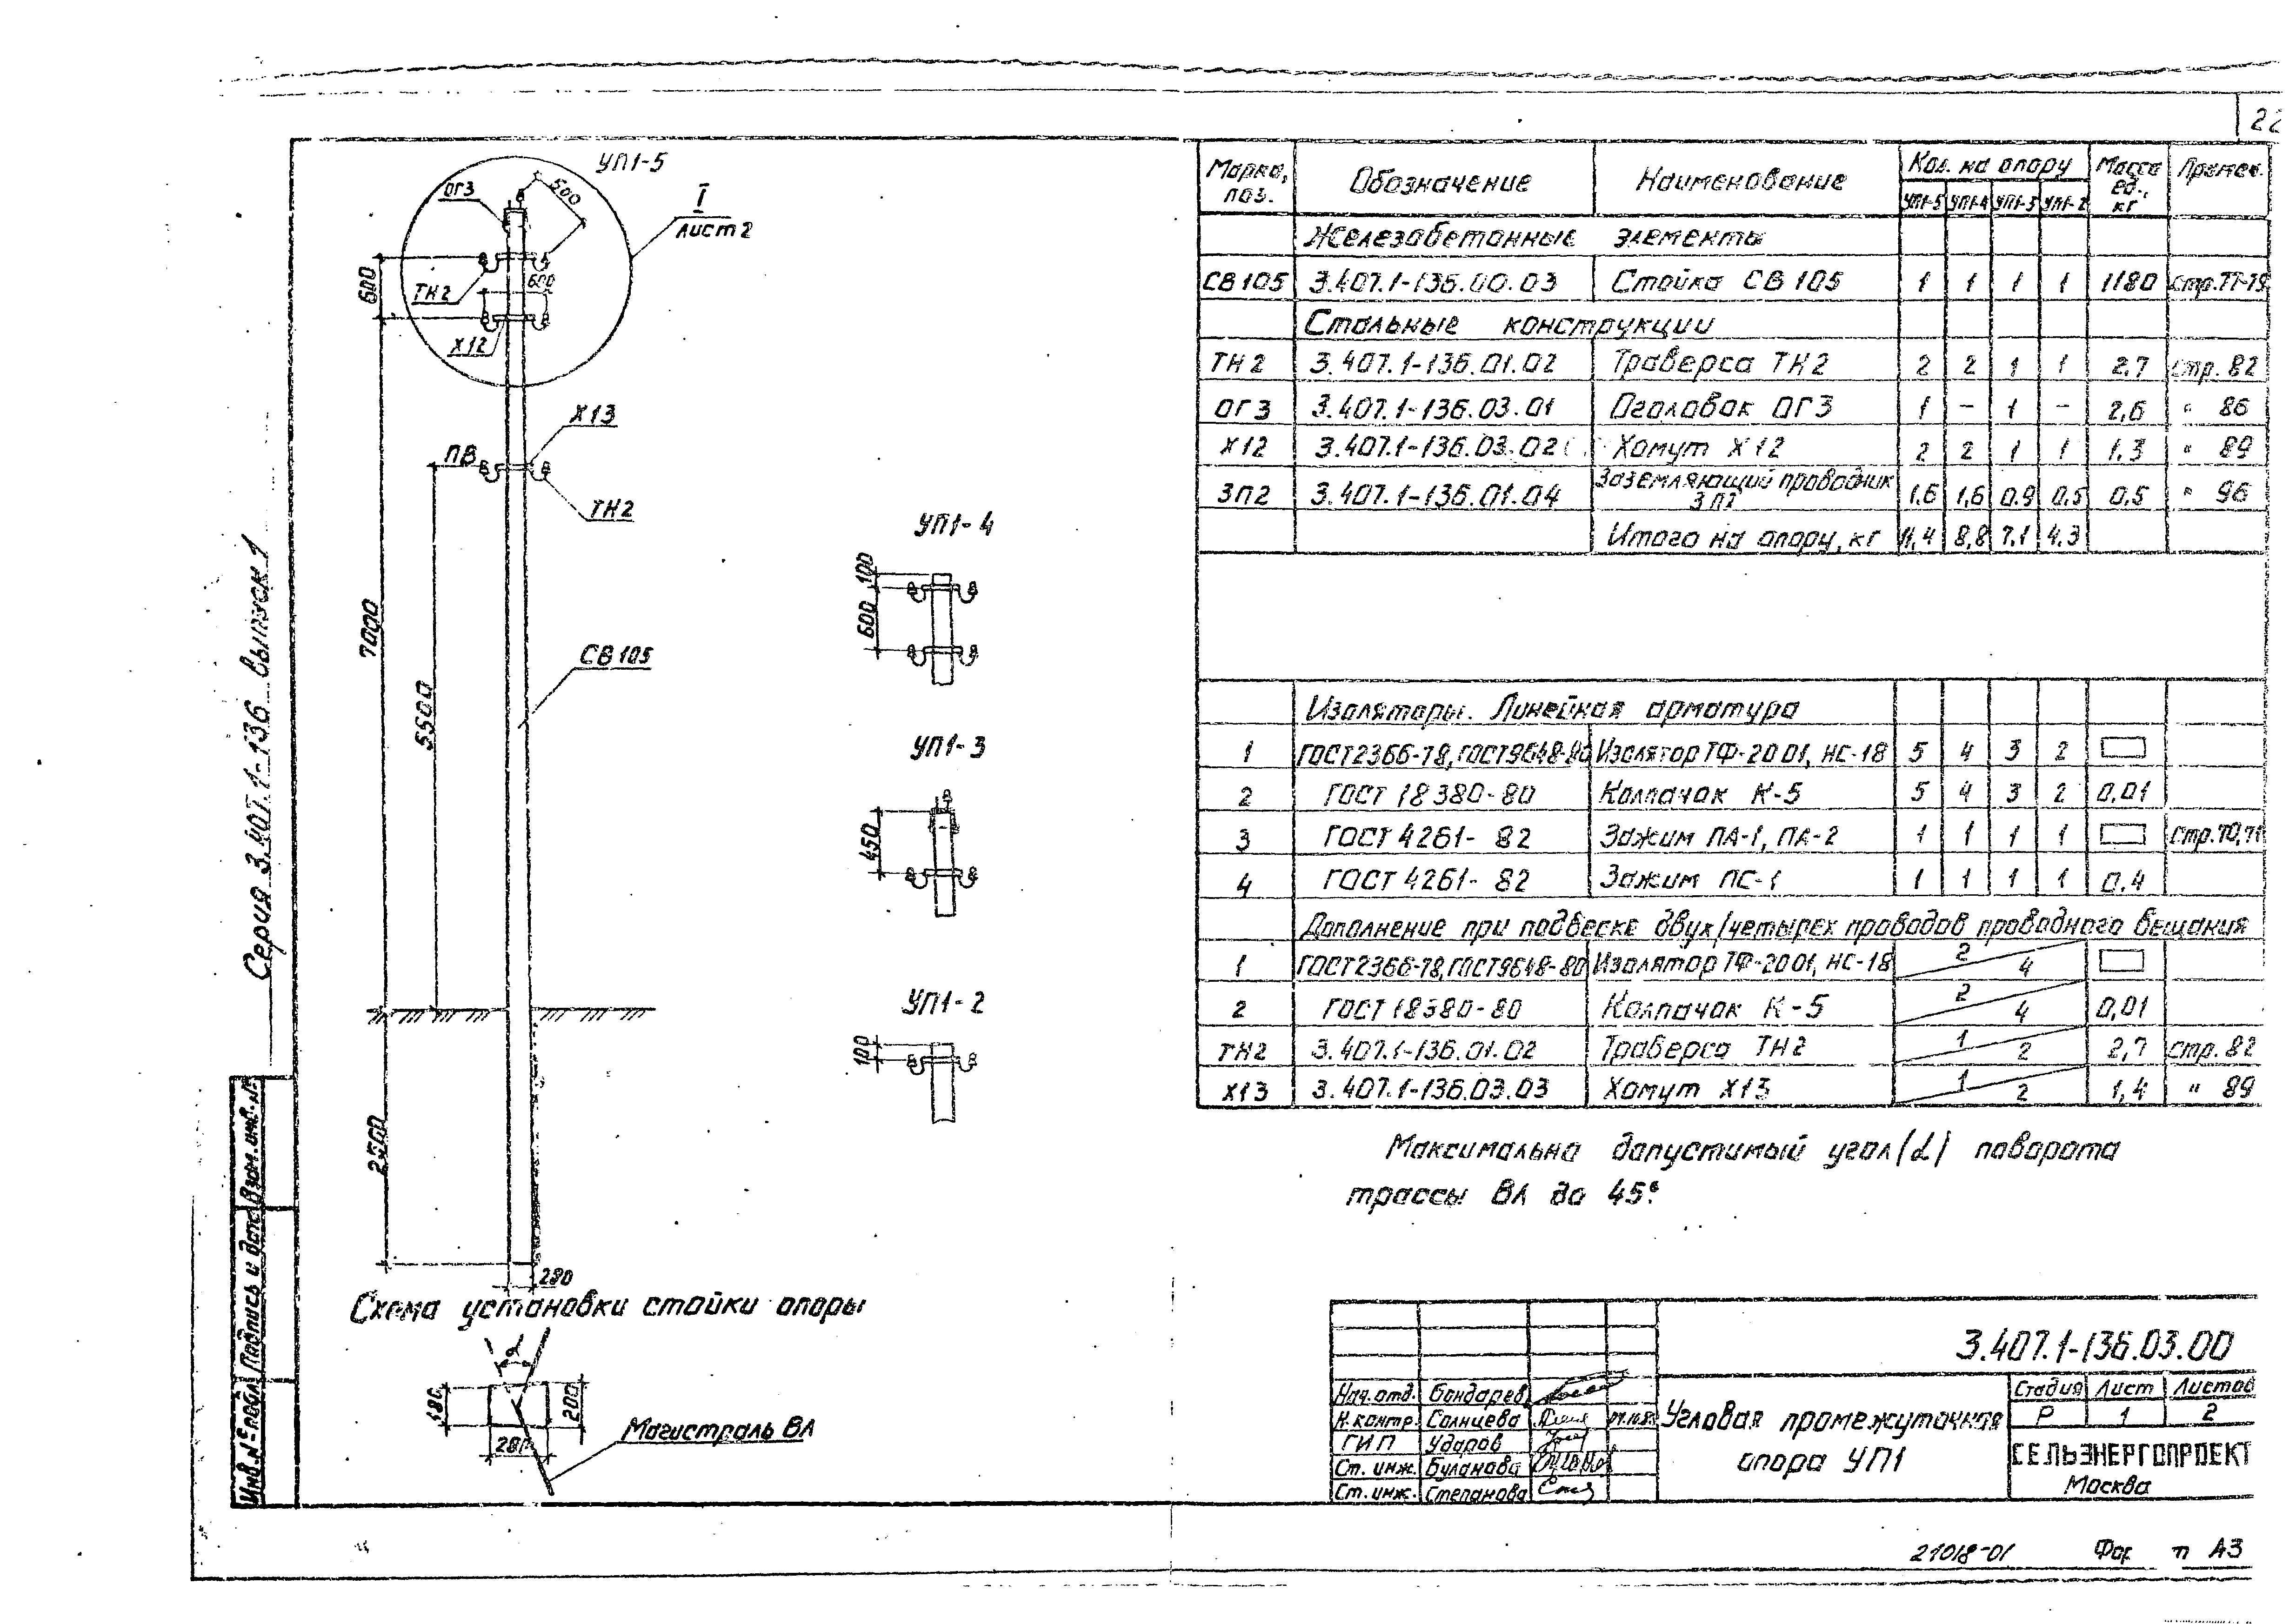 22
Серия 3.407.1-136 Выпуск 1
УП1-5
ОГ3
500
I
Лист 2
600
ТН2
600
Х12
Х13
ПВ
ТН2
7000
5500
СВ105
2500
280
УП1-4
100
600
УП1-3
450
УП1-2
100
Схема установки стойки опоры
α
180
200
280
Магистраль ВЛ
Марка, поз. Обозначение Наименование Кол. на опору Масса ед., кг Примеч.
УП1-5 УП1-4 УП1-3 УП1-2
Железобетонные элементы
СВ105 3.407.1-136.00.03 Стойка СВ105 1 1 1 1 1180 Стр.77-79
Стальные конструкции
ТН2 3.407.1-136.01.02 Траверса ТН2 2 2 1 1 2,7 Стр. 82
ОГ3 3.407.1-136.03.01 Оголовок ОГ3 1 - 1 - 2,6 " 86
Х12 3.407.1-136.03.02 Хомут Х12 2 2 1 1 1,3 " 89
ЗП2 3.407.1-136.01.04 Заземляющий проводник ЗП2 1,6 1,6 0.9 0,5 0,5 " 96
Итого на опору, кг 11,4 8,8 7,1 4,3
Изоляторы. Линейная арматура
1 ГОСТ2366-78, ГОСТ9648-80 Изолятор ТФ-2001, НС-18 5 4 3 2
2 ГОСТ 18380-80 Колпачок К-5 5 4 3 2 0,01
3 ГОСТ 4261-82 Зажим ПА-1, ПА-2 1 1 1 1 Стр.70,71
4 ГОСТ 4261-82 Зажим ПС-1 1 1 1 1 0,4
Дополнение при подвеске двух/четырех проводов проводного вещания
1 ГОСТ2366-78, ГОСТ9648-80 Изолятор ТФ-2001, НС-18 2/4
2 ГОСТ 18380-80 Колпачок К-5 2/4 0,01
ТН2 3.407.1-136.01.02 Траверса ТН2 1/2 2,7 Стр. 82
Х13 3.407.1-136.03.03 Хомут Х13 1/2 1,4 " 89
Максимально допустимый угол (α) поворота
трассы ВЛ до 45°.
3.407.1-136.03.00
Нач.отд. Бондарев
Н.контр. Солнцева
ГИП Ударов
Ст. инж. Буланова
Ст. инж. Степанова
Угловая промежуточная
опора УП1
Стадия Лист Листов
Р 1 2
СЕЛЬЭНЕРГОПРОЕКТ
Москва
Инв.№ подл. Подпись и дата Взам.инв.№
21018-01
А3